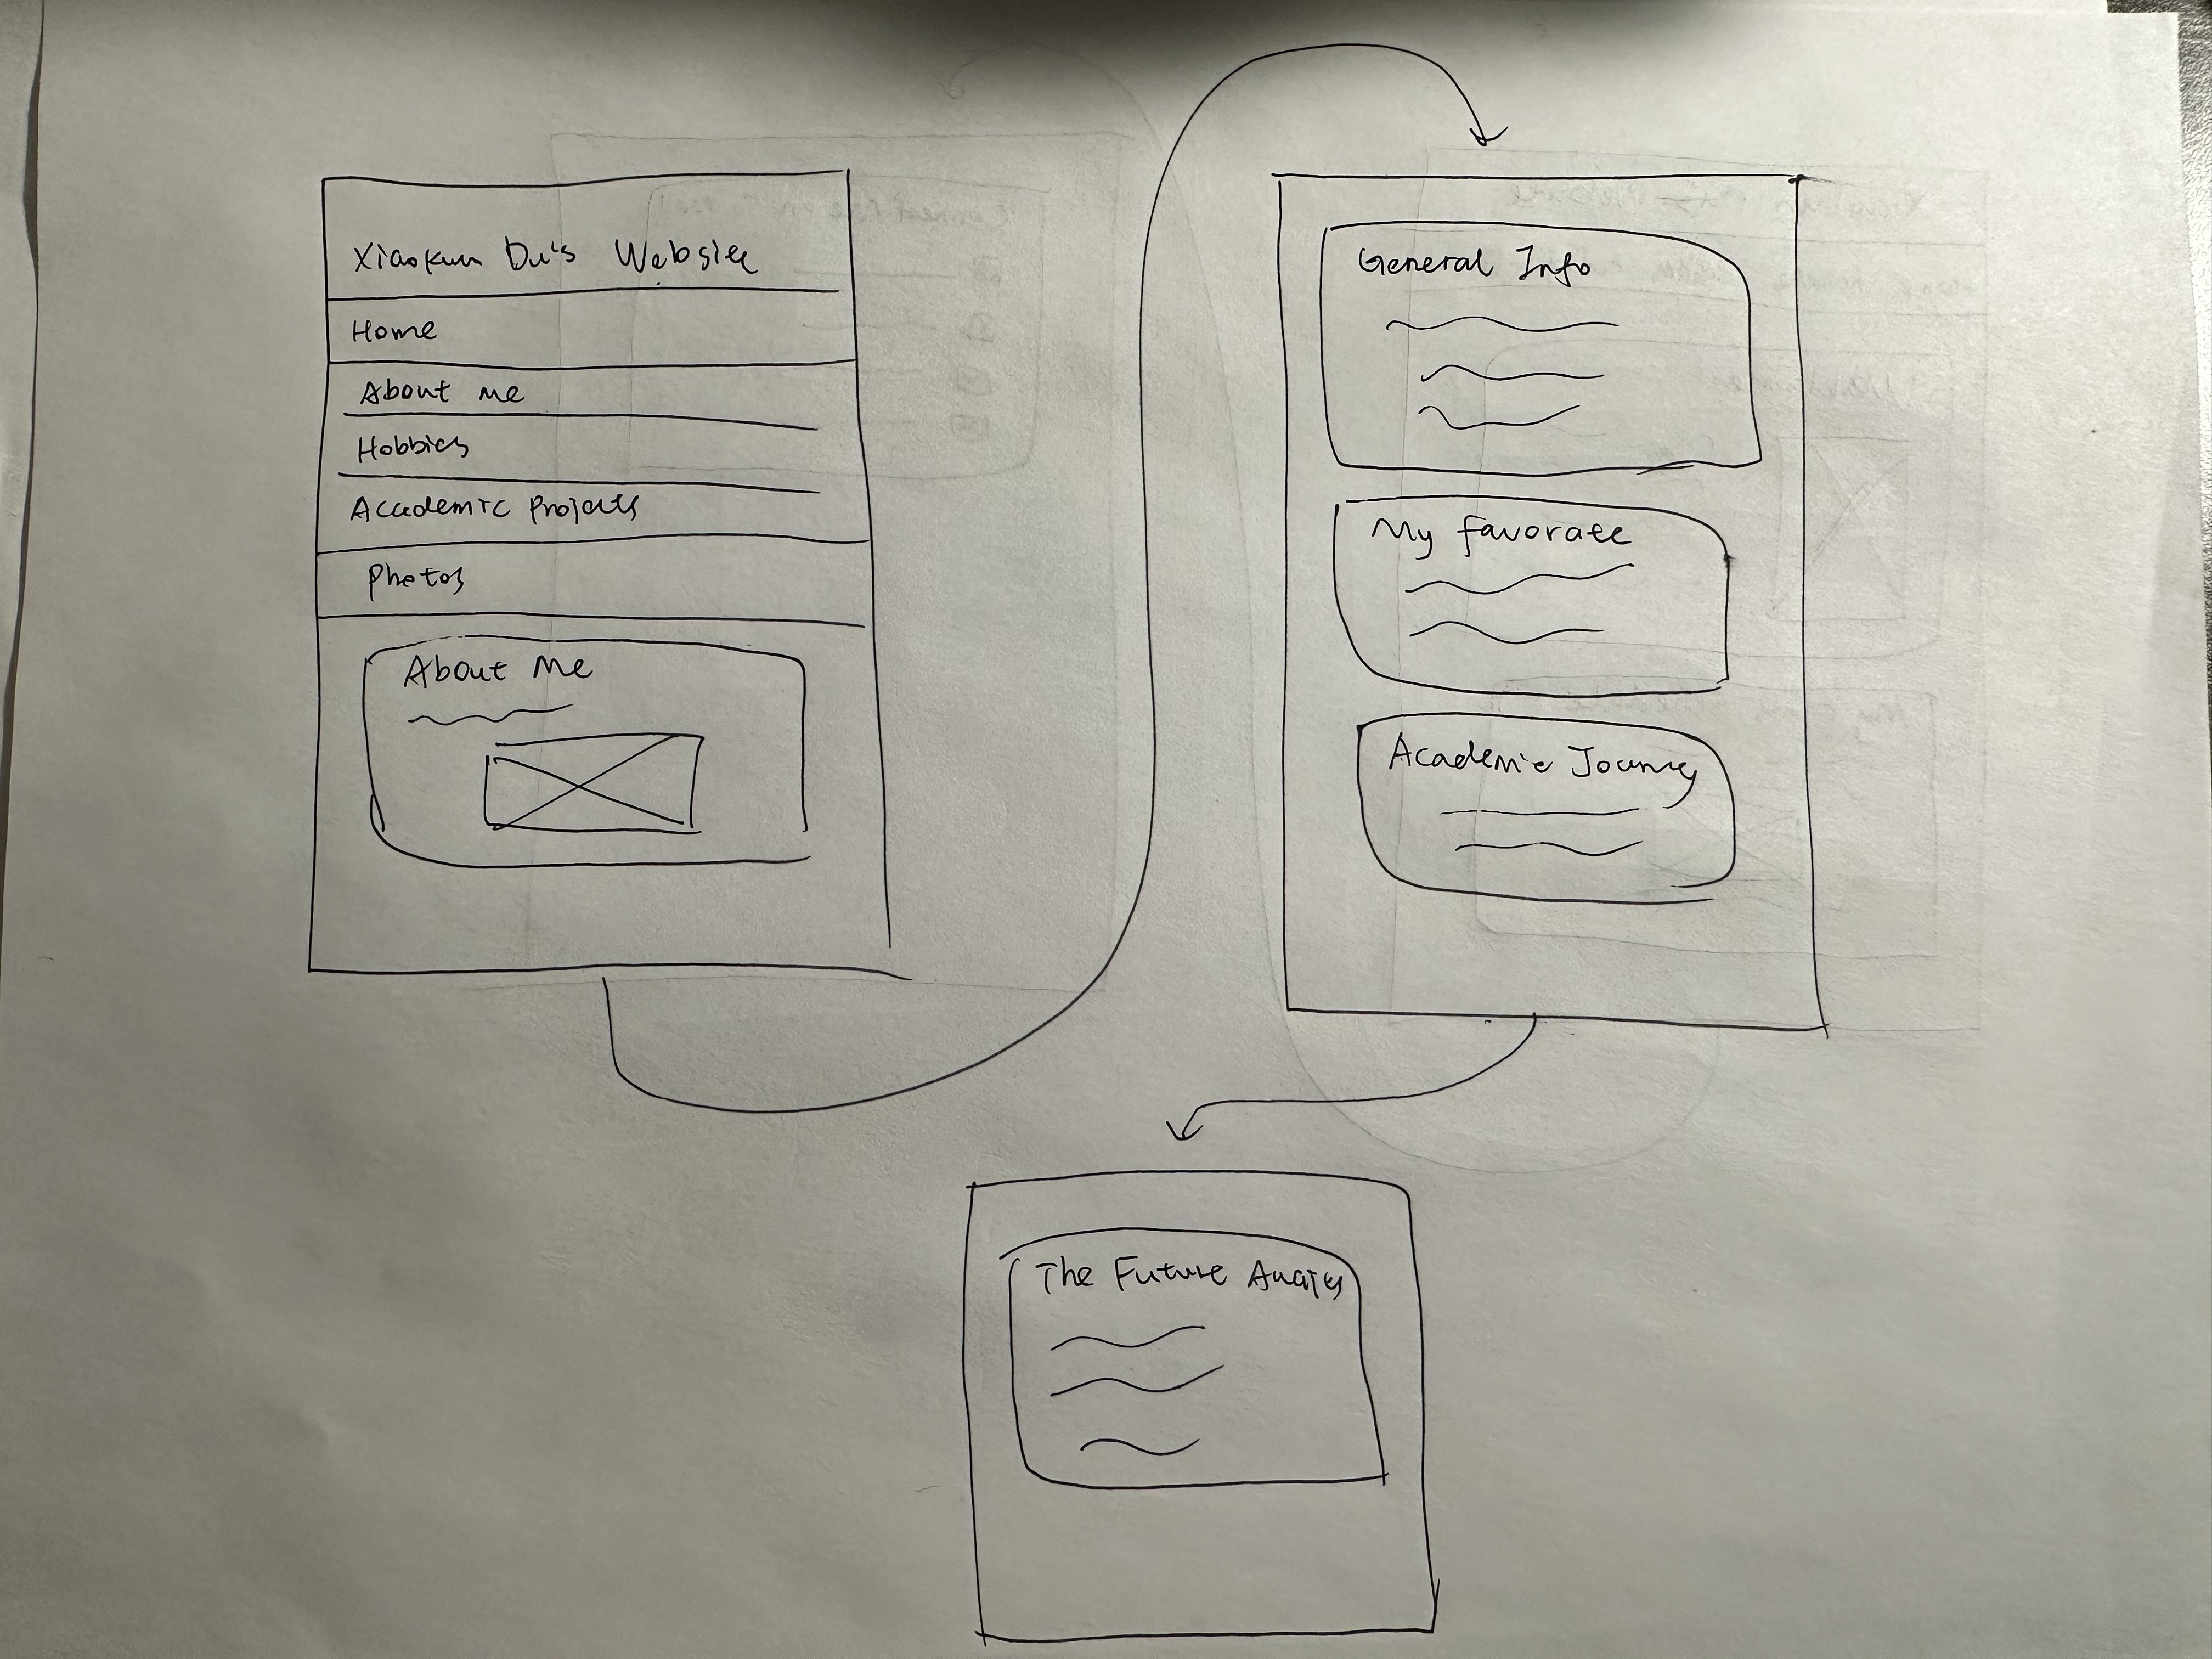 Xiaokun Du's Website
Home
About me
Hobbies
Academic Projects
Photos
About Me
General Info
My favorate
Academic Journey
The Future Awaits